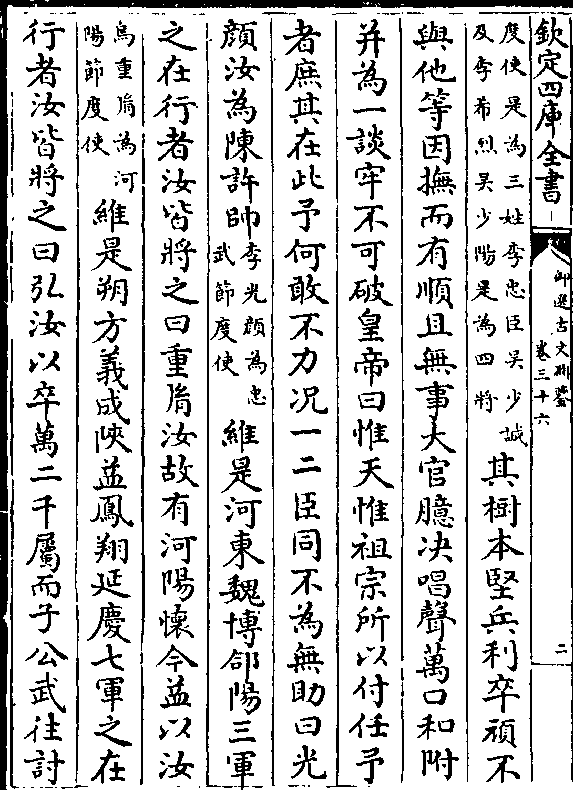 欽定四庫全書
御選古文淵鑒 卷三十六 二
度使是為三姓李忠臣吳少誠
及李希烈吳少陽是為四將
其樹本堅兵利卒頑不
與他等因撫而有順且無事大官臆决唱聲萬口和附
并為一談牢不可破皇帝曰惟天惟祖宗所以付任予
者庶其在此予何敢不力况一二臣同不為無助曰光
顔汝為陳許帥
李光顔為忠
武節度使
維是河東魏博郃陽三軍
之在行者汝皆將之曰重𦙍汝故有河陽懷今益以汝
烏重𦙍為河
陽節度使
維是朔方義成陜益鳳翔延慶七軍之在
行者汝皆將之曰弘汝以卒萬二千屬而子公武往討